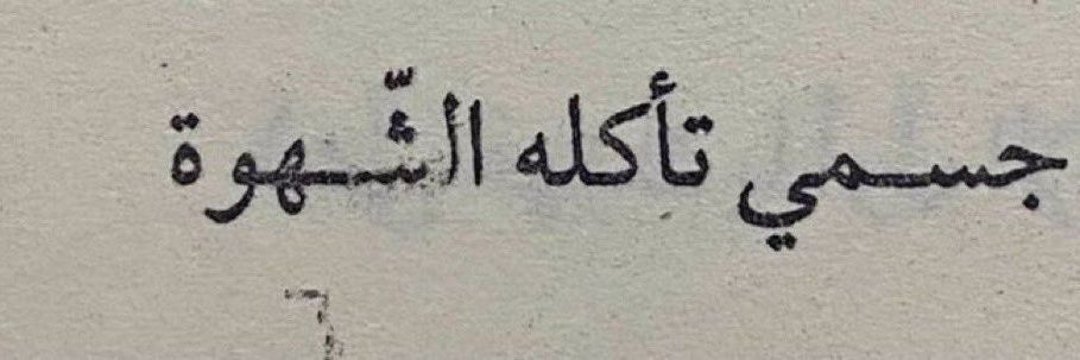 جسمي تأكله الشّهوة